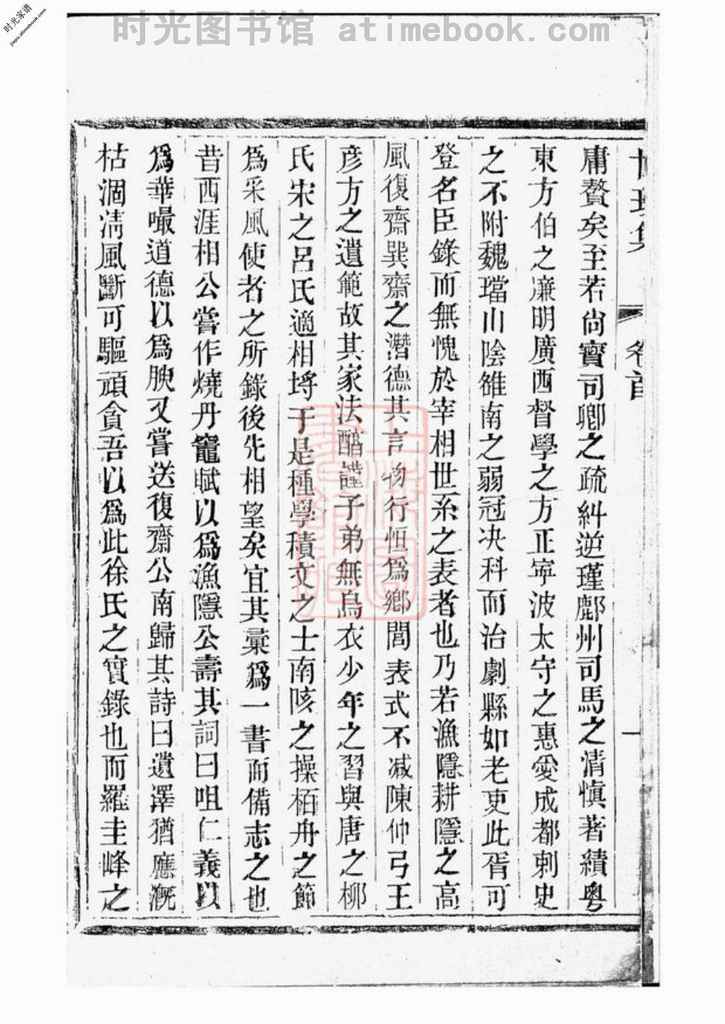 时光图书馆 atimebook.com
时光家谱
卷首
一
庸贅矣至若尚寳司卿之疏糾逆瑾鄜州司馬之清愼著績粤
東方伯之廉明廣西督學之方正寧波太守之惠愛成都刺史
之不附魏璫山陰雒南之弱冠决科而治劇縣如老吏此胥可
登名臣錄而無愧於宰相世系之表者也乃若漁隱耕隱之高
風復齋巽齋之潛德其言物行恒爲鄉閭表式不减陳仲弓王
彦方之遺範故其家法醇謹子弟無烏衣少年之習與唐之柳
氏宋之呂氏適相埒于是種學積文之士南陔之操栢舟之節
爲采風使者之所錄後先相望矣宜其彙爲一書而備志之也
昔西涯相公嘗作燒丹竈賦以爲漁隱公壽其詞曰咀仁義以
爲華嘬道德以爲腴又嘗送復齋公南歸其詩曰遺澤猶應漑
枯涸凊風斷可驅頑貪吾以爲此徐氏之實錄也而羅圭峰之